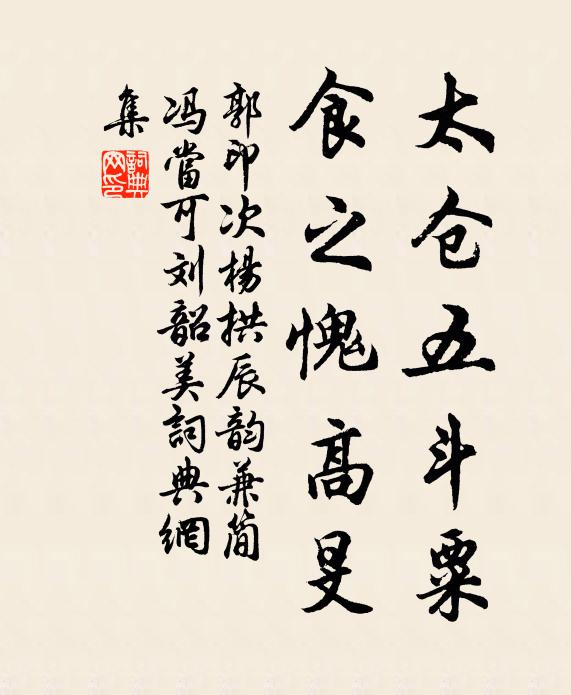 太仓五斗粟
食之愧高旻
郭印次楊拱辰韵兼简
冯當可刘韶美詞典網
集
詞典
网印